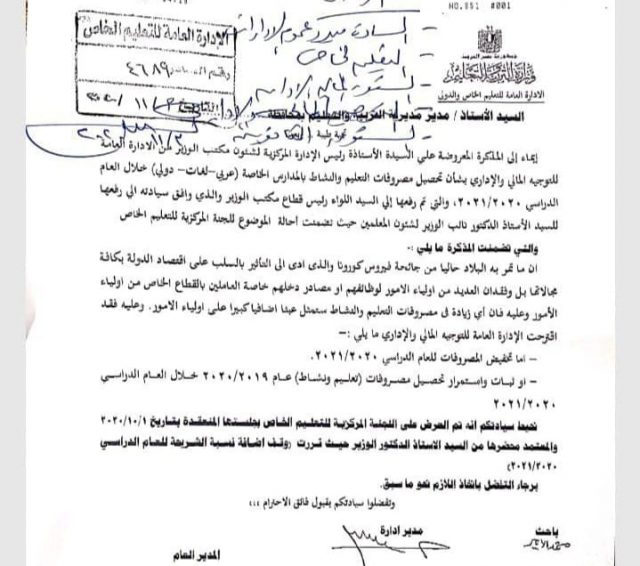 NO.851 #001
جمهورية مصر العربية
وزارة التربية والتعليم
الادارة العامة للتعليم الخاص والدولى
الإدارة العامة للتعليم الخاص
٤٦٨٩
السادة
السيد الأستاذ / مدير مديرية التربية والتعليم بمحافظة
تحية طيبة
إيماء إلى المذكرة المعروضة على السيدة الأستاذة رئيس الإدارة المركزية لشئون مكتب الوزير من الادارة العامة
للتوجيه المالي والإداري بشأن تحصيل مصروفات التعليم والنشاط بالمدارس الخاصة (عربي-لغات- دولي) خلال العام
الدراسي ٢٠٢١/٢٠٢٠، والتى تم رفعها إلي السيد اللواء رئيس قطاع مكتب الوزير والذي وافق سيادته الي رفعها
للسيد الأستاذ الدكتور نائب الوزير لشئون المعلمين حيث تضمنت أحالة الموضوع للجنة المركزية للتعليم الخاص
والتي تضمنت المذكرة ما يلي :-
ان ما تمر به البلاد حاليا من جائحة فيروس كوروونا والذى ادى الى التأثير بالسلب على اقتصاد الدولة بكافة
مجالاتها بل وفقدان العديد من اولياء الامور لوظائفهم او مصادر دخلهم خاصة العاملين بالقطاع الخاص من اولياء
الأمور وعليه فان أي زيادة فى مصروفات التعليم والنشاط ستمثل عبئا اضافيا كبيرا على اولياء الامور. وعليه فقد
اقترحت الإدارة العامة للتوجيه المالي والإداري ما يلي :-
- اما تخفيض المصروفات للعام الدراسي ٢٠٢١/٢٠٢٠.
- او ثبات واستمرار تحصيل مصروفات (تعليم ونشاط) عام ٢٠٢٠/٢٠١٩ خلال العام الدراسي
٢٠٢١/٢٠٢٠
نحيط سيادتكم انه تم العرض على اللجنة المركزية للتعليم الخاص بجلستها المنعقدة بتاريخ ٢٠٢٠/١٠/١
والمعتمد محضرها من السيد الاستاذ الدكتور الوزير حيث قررت (وقف اضافة نسبة الشريحة للعام الدراسي
٢٠٢١/٢٠٢٠)
برجاء التفضل باتخاذ اللازم نحو ما سبق.
وتفضلوا سيادتكم بقبول فائق الاحترام ،،،
باحث
مدير ادارة
المدير العام